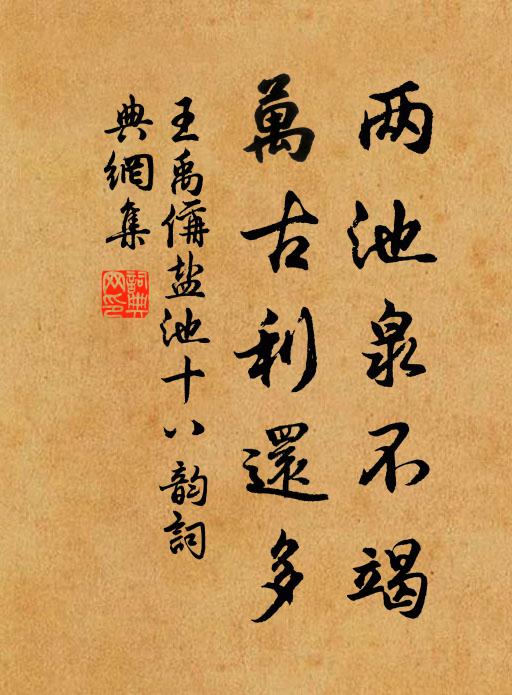 两池泉不竭
萬古利還多
王禹偁盐池十八韵詞
典網集
詞典网印